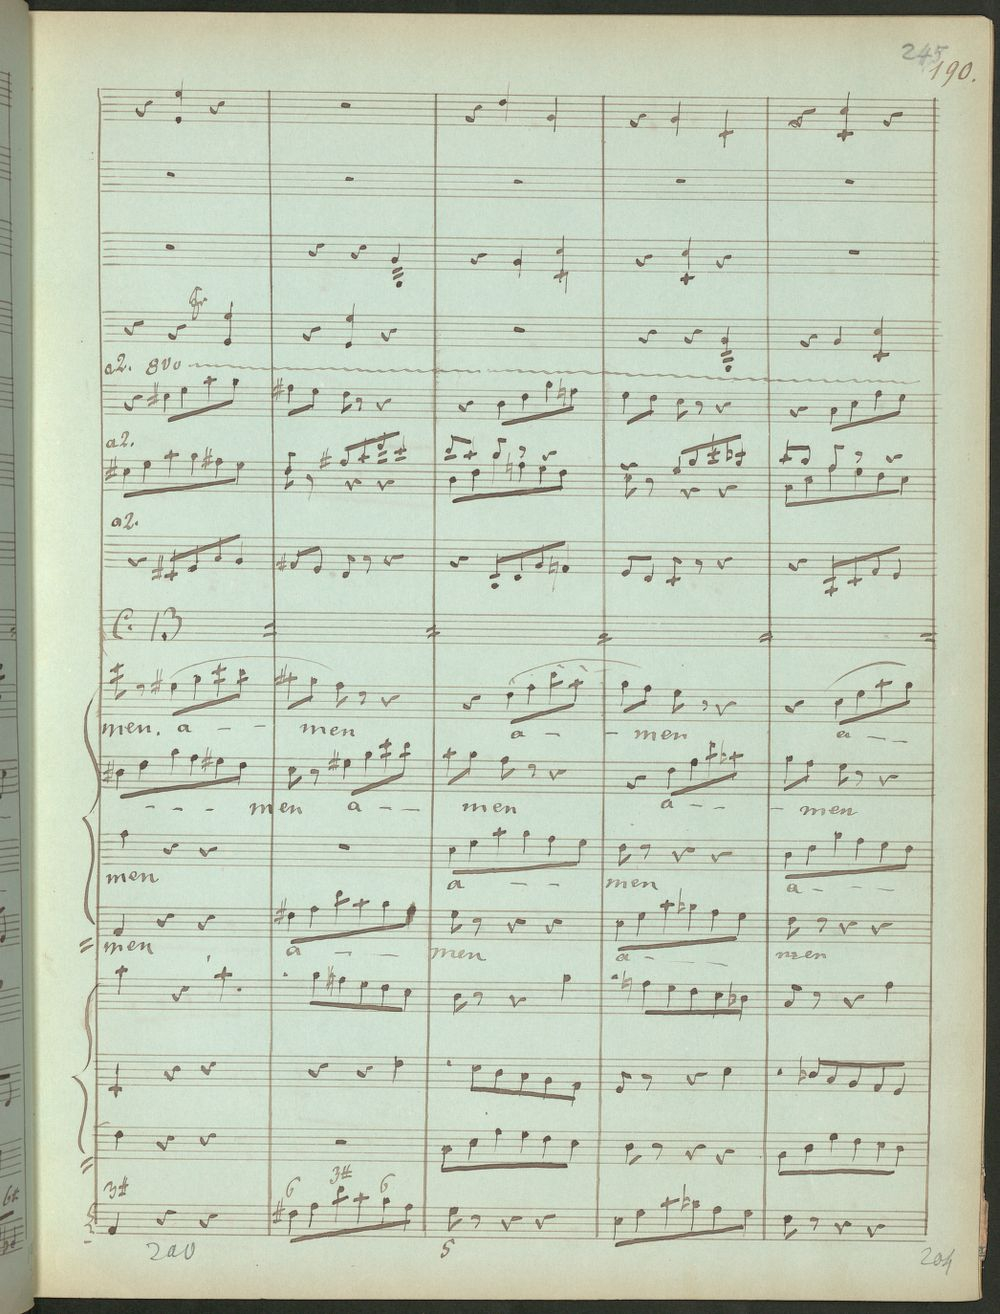 245
190.
tr
a2. 8vo
a2.
a2.
C. B
men. a - - men a - - men a - -
- - - men a - - men a - - - men
men a - - men a - - -
men a - - men a - - - men
3# 6 3# 6
200 5 204